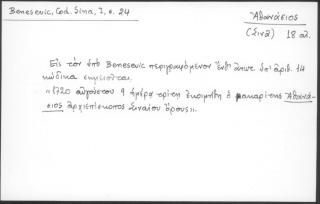 Benesevic, Cod. Sina, I, σ. 24
Ἀθανάσιος
(Σινᾶ) 18 αἰ.
Εἰς τὸν ὑπὸ Benesevic περιγραφόμενον ὑπ' ἀριθ. 14
κώδικα σημειοῦται
«1720 αὐγούστου 9 ἡμέρα τρίτη ἐκοιμήθη ὁ μακαρίτης Ἀθανά-
σιος ἀρχιεπίσκοπος Σιναίου ὄρους».